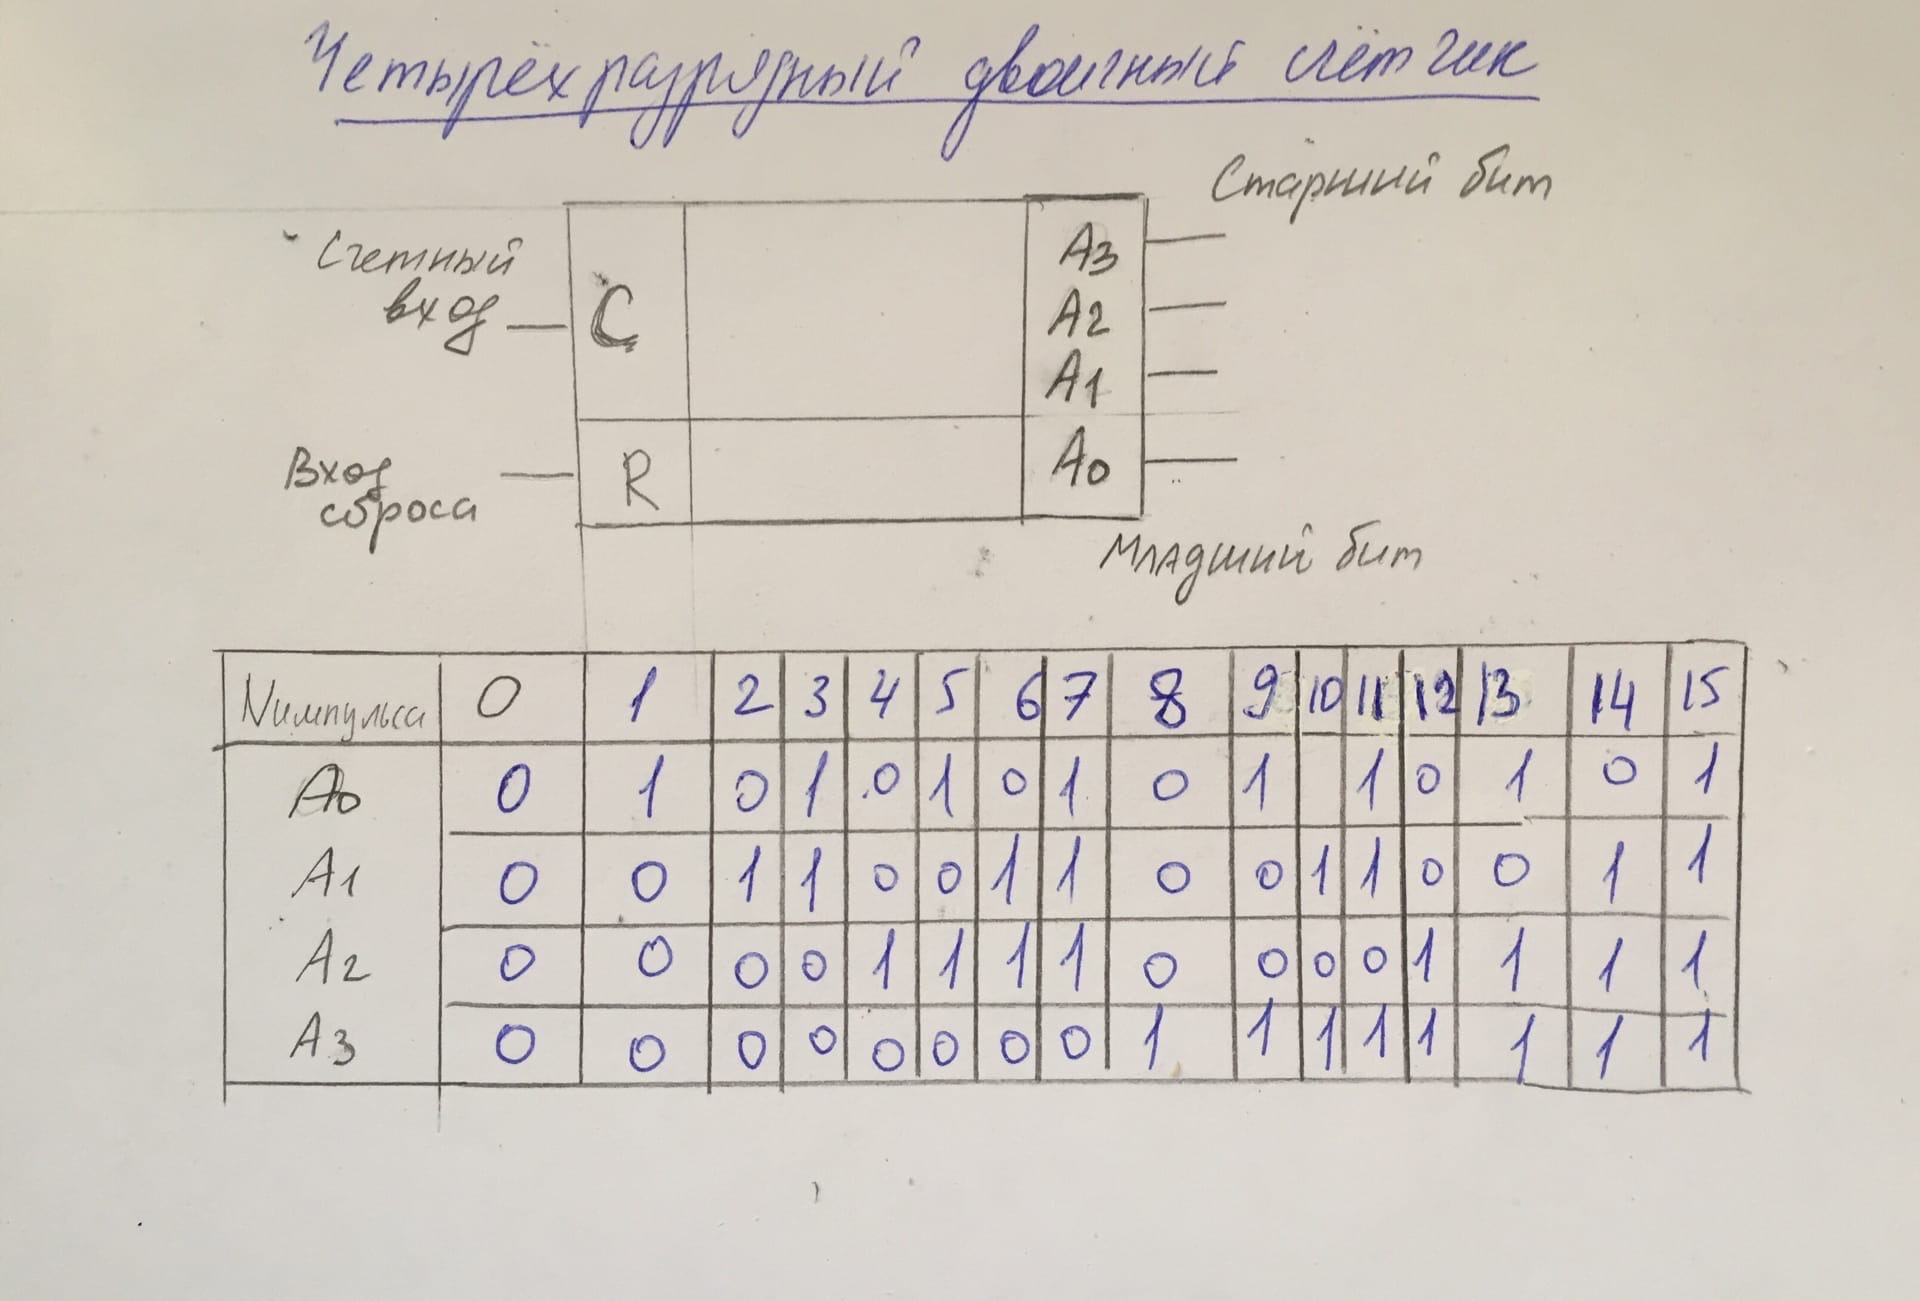 Четырёхразрядный двоичный счётчик
Старший бит
Счетный
вход
C
A3
A2
A1
Вход
сброса
R
A0
Младший бит
Nимпульса 0 1 2 3 4 5 6 7 8 9 10 11 12 13 14 15
A0 0 1 0 1 0 1 0 1 0 1 1 0 1 0 1
A1 0 0 1 1 0 0 1 1 0 0 1 1 0 0 1 1
A2 0 0 0 0 1 1 1 1 0 0 0 0 1 1 1 1
A3 0 0 0 0 0 0 0 0 1 1 1 1 1 1 1 1